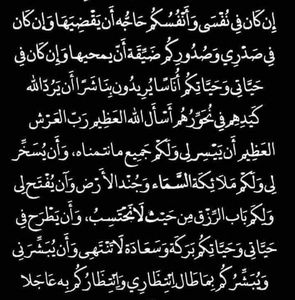 إن كان في نفسي وأنفسكم حاجه أن يقضيها وإن كان
في صدري وصدوركم ضيقة أن يمحيها وإن كان في
حياتي وحياتكم أناسا يريدون بنا شرا أن يرد الله
كيدهم في نحورهم أسأل الله العظيم رب العرش
العظيم أن ييسر لي ولكم جميع مانتمناه، وأن يسخر
لي ولكم ملائكة السماء وجند الأرض وأن يفتح لي
ولكم باب الرزق من حيث لا نحتسب، وأن يطرح في
حياتي وحياتكم بركة وسعادة لا تنتهى وأن يبشرني
ويبشركم بما طال إنتظاري وإنتظاركم به عاجلا